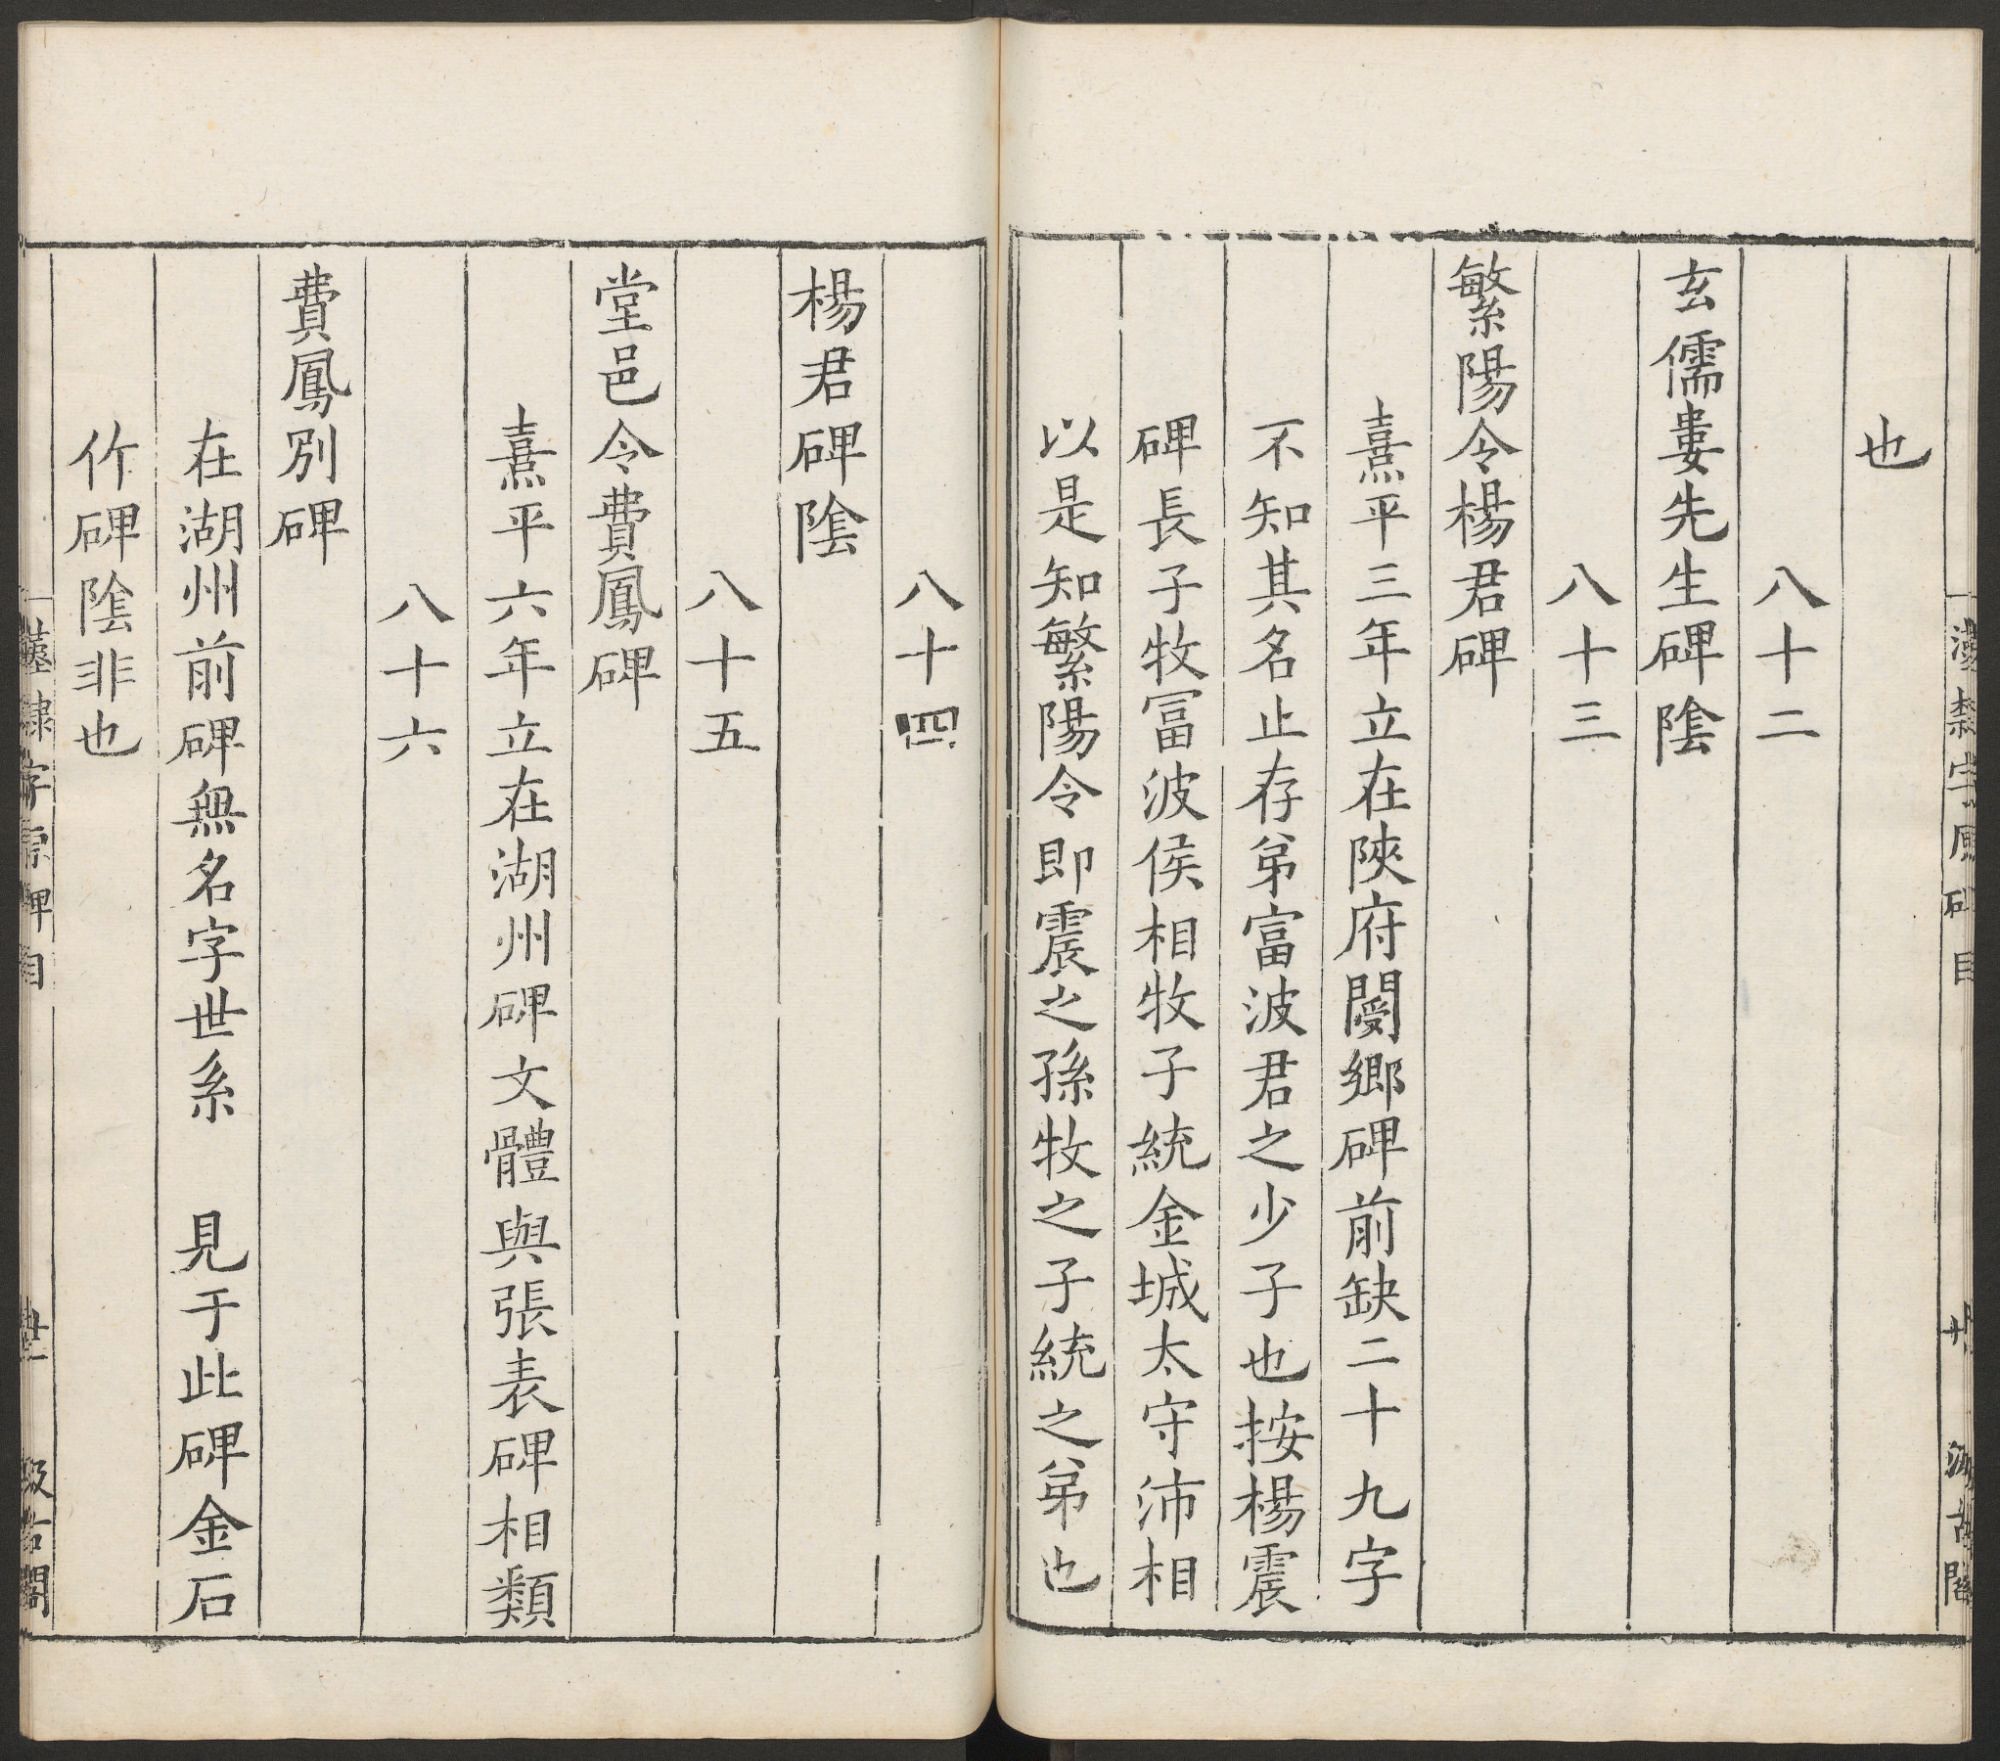 也
八十二
玄儒婁先生碑陰
八十三
繁陽令楊君碑
熹平三年立在陝府閿鄉碑前缺二十九字
不知其名止存弟富波君之少子也按楊震
碑長子牧冨波侯相牧子統金城太守沛相
以是知繁陽令即震之孫牧之子統之弟也
八十四
楊君碑陰
八十五
堂邑令費鳳碑
熹平六年立在湖州碑文體與張表碑相類
八十六
費鳳別碑
在湖州前碑無名字世系 見于此碑金石
作碑陰非也
隸字原碑目
汲古閣